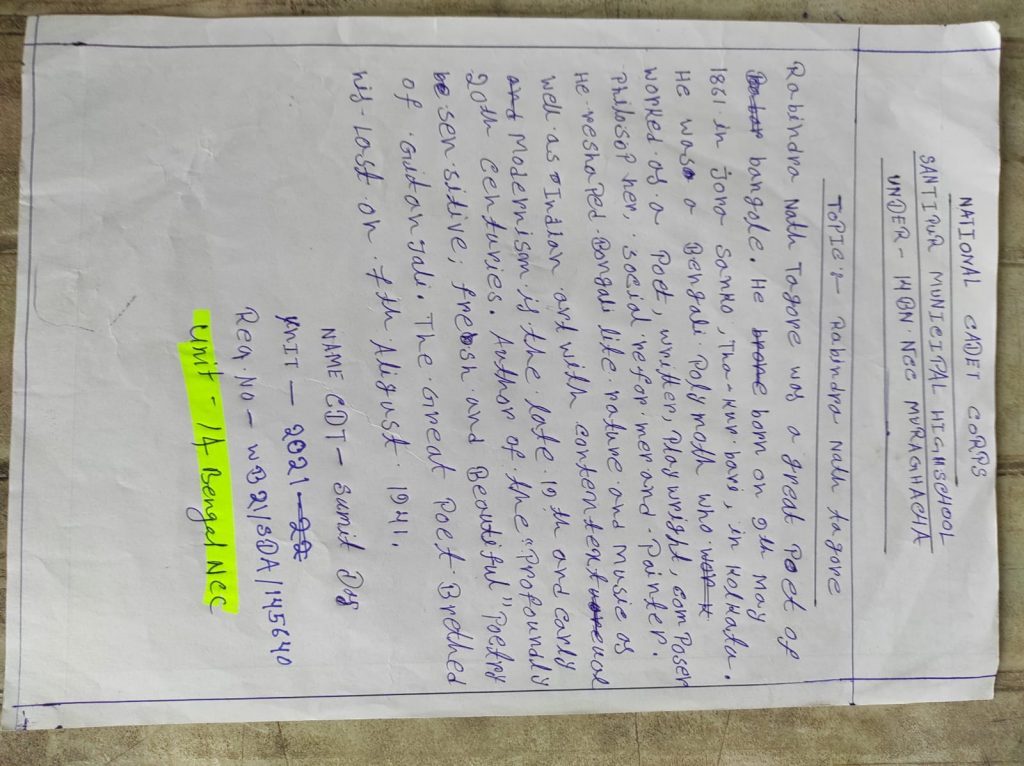 NATIONAL CADET CORPS
SANTIPUR MUNICIPAL HIGHSCHOOL
UNDER - 14BN NCC MURAGHACHA
TOPIC:- Rabindra Nath tagore
Rabindra Nath Tagore was a great Poet of
bangale. He born on 9th May
1861 in Jora Sanko, Tha-kur bari, in Kolkata.
He was a Bengali Polymath who
worked as a Poet, writter, Play wright, comPoser
Philosop her, social refor mer and Painter.
He reshaPed Bengali lite rature and Music as
well as Indian art with contentextueual
Modernism is the late 19th and early
20th centuries. Author of the "Profoundly
sen sitive, fresh and Beautiful" Poetry
of Guitangali. The Great Poet Brethed
his Last on 7th August 1941.
NAME CDT - Sumit Das
UNIT - 2021-22
Reg. No - WB21/SDA/145640
Unit - 14 Bengal NCC